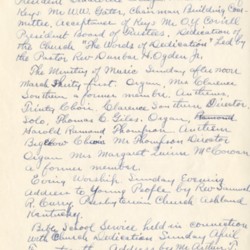 Keys Mr W.W. Eater, Chairman Building Com-
mittee, Acceptance of Keys Mr. O.Y. Coviell
President Board of Trustees, Dedication of
the Church "The Words of Dedication" Led by
the Pastor Rev Dunbar H. Ogden Jr.
The Ministry of Music Sunday afternoon
March First, Organ, Mrs Clarence
a former member, Anthem,
Trinity Choir, Clarence Director
Solo, Thomas C. Giles, Organ,
Harold Ramond Thompson, Anthem
Bigelow Choir Mr Thompson Director
Organ Mrs Margaret Laurie McConoran
A former member.
Eving Worship, Sunday Evening
Address to Young People by Rev Samuel
R. Curry Presbyterian Church Ashland
Kentucky.
Bible School Service held in connection
with Church Dedication Sunday April
Address by Mr Arthur